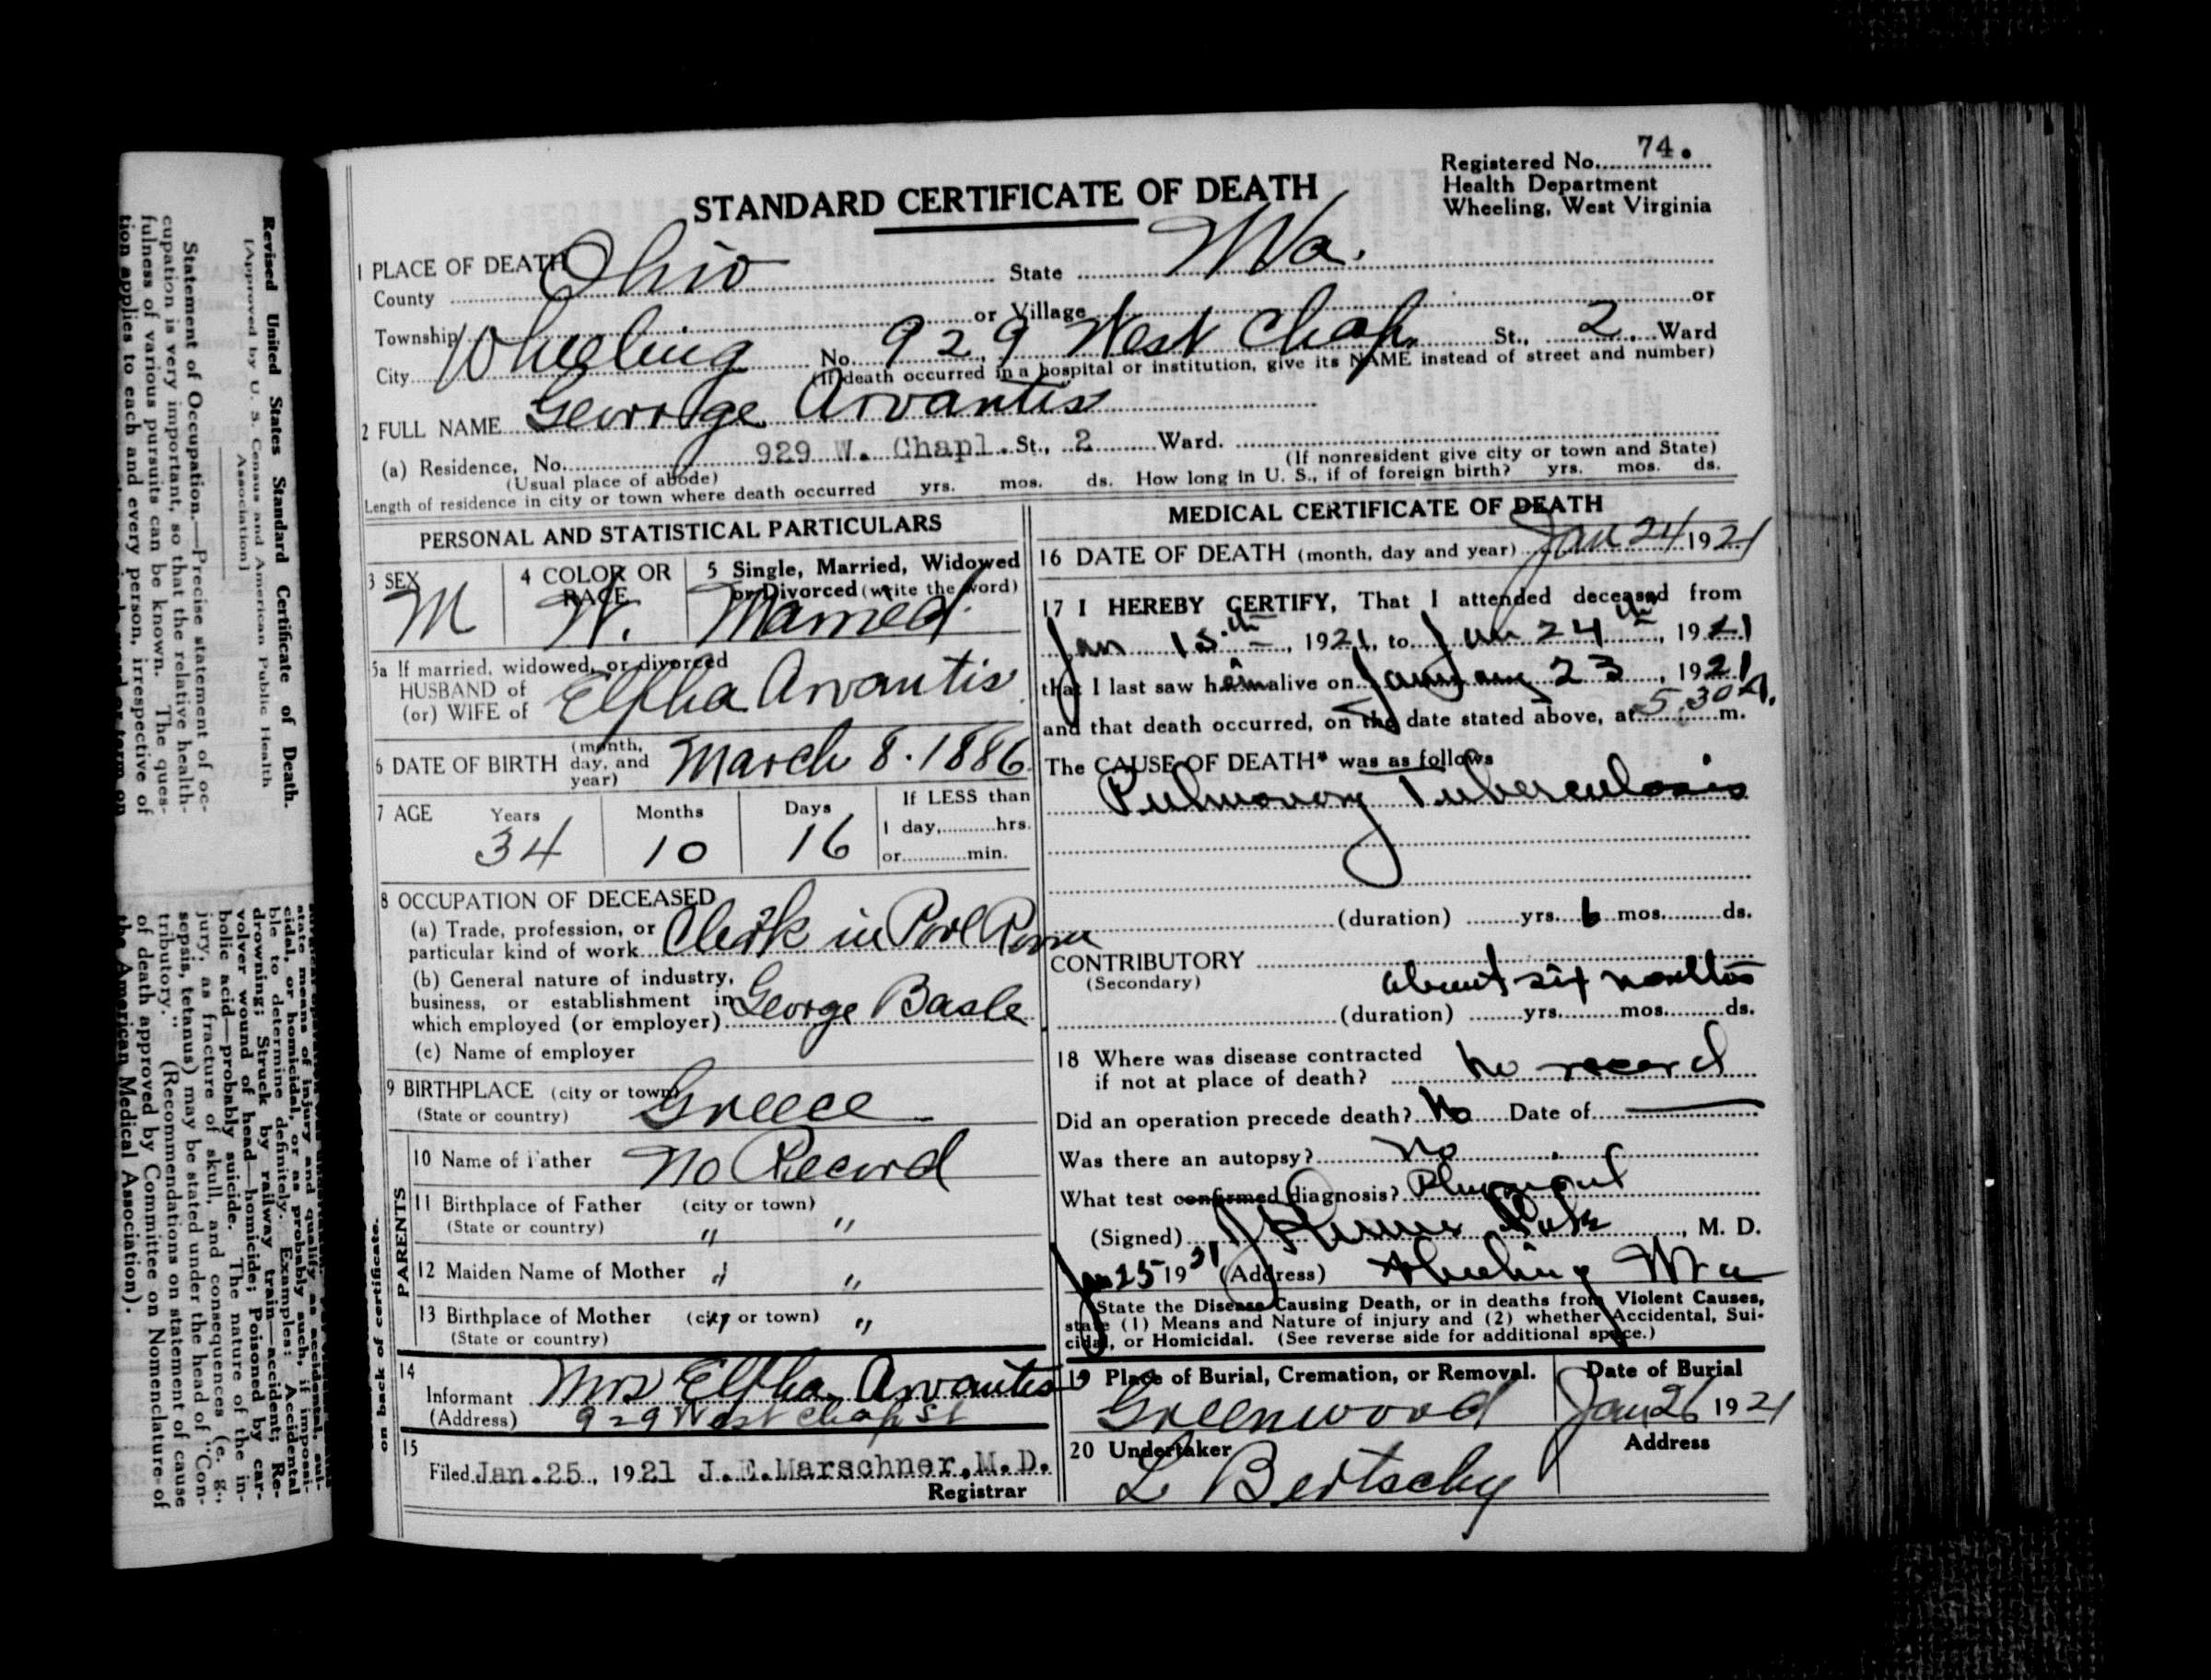 Registered No. 74.
Health Department
Wheeling, West Virginia
STANDARD CERTIFICATE OF DEATH
1 PLACE OF DEATH
County Ohio State WVa.
Township or Village or
City Wheeling No. 929 West Chap. St., 2 Ward
(If death occurred in a hospital or institution, give its NAME instead of street and number)
2 FULL NAME George Arvantis
(a) Residence, No. 929 W. Chapl. St., 2 Ward.
(Usual place of abode) (If nonresident give city or town and State)
Length of residence in city or town where death occurred yrs. mos. ds. How long in U. S., if of foreign birth? yrs. mos. ds.
PERSONAL AND STATISTICAL PARTICULARS
3 SEX M
4 COLOR OR RACE W.
5 Single, Married, Widowed
or Divorced (write the word)
Married
5a If married, widowed, or divorced
HUSBAND of
(or) WIFE of Elpha Arvantis
6 DATE OF BIRTH (month, day, and year) March 8. 1886
7 AGE Years Months Days If LESS than
34 10 16 1 day, hrs.
or min.
8 OCCUPATION OF DECEASED
(a) Trade, profession, or
particular kind of work Clerk in Pool Room
(b) General nature of industry,
business, or establishment in
which employed (or employer) George Basle
(c) Name of employer
9 BIRTHPLACE (city or town)
(State or country) Greece
PARENTS
10 Name of Father No Record
11 Birthplace of Father (city or town)
(State or country) " "
12 Maiden Name of Mother " "
13 Birthplace of Mother (city or town) "
(State or country)
14
Informant Mrs Elpha Arvantis
(Address) 929 West Chap St
15
Filed Jan. 25, 1921 J. E. Marschner, M. D.
Registrar
MEDICAL CERTIFICATE OF DEATH
16 DATE OF DEATH (month, day and year) Jan 24 1921
17 I HEREBY CERTIFY, That I attended deceased from
Jan 15th, 1921, to Jan 24th, 1921
that I last saw him alive on January 23, 1921
and that death occurred, on the date stated above, at 5:30 A. m.
The CAUSE OF DEATH* was as follows
Pulmonary Tuberculosis
(duration) yrs. 6 mos. ds.
CONTRIBUTORY
(Secondary) about six months
(duration) yrs. mos. ds.
18 Where was disease contracted
if not at place of death? no record
Did an operation precede death? No Date of
Was there an autopsy? No
What test confirmed diagnosis? Physical
(Signed) , M. D.
Jan 25 1921 (Address) Wheeling WVa
State the Disease Causing Death, or in deaths from Violent Causes,
state (1) Means and Nature of injury and (2) whether Accidental, Sui-
cidal, or Homicidal. (See reverse side for additional space.)
19 Place of Burial, Cremation, or Removal. Date of Burial
Greenwood Jan 26 1921
20 Undertaker Address
L Bertschy
Revised United States Standard Certificate of Death.
[Approved by U. S. Census and American Public Health
Association]
Statement of Occupation.—Precise statement of oc-
cupation is very important, so that the relative health-
fulness of various pursuits can be known. The ques-
tion applies to each and every person, irrespective of
state means of injury and qualify as accidental, sui-
cidal, or homicidal, or as probably such, if impossi-
ble to determine definitely. Examples: Accidental
drowning; Struck by railway train—accident; Re-
volver wound of head—homicide; Poisoned by car-
bolic acid—probably suicide. The nature of the in-
jury, as fracture of skull, and consequences (e. g.,
sepsis, tetanus) may be stated under the head of "Con-
tributory." (Recommendations on statement of cause
of death approved by Committee on Nomenclature of
the American Medical Association).
on back of certificate.